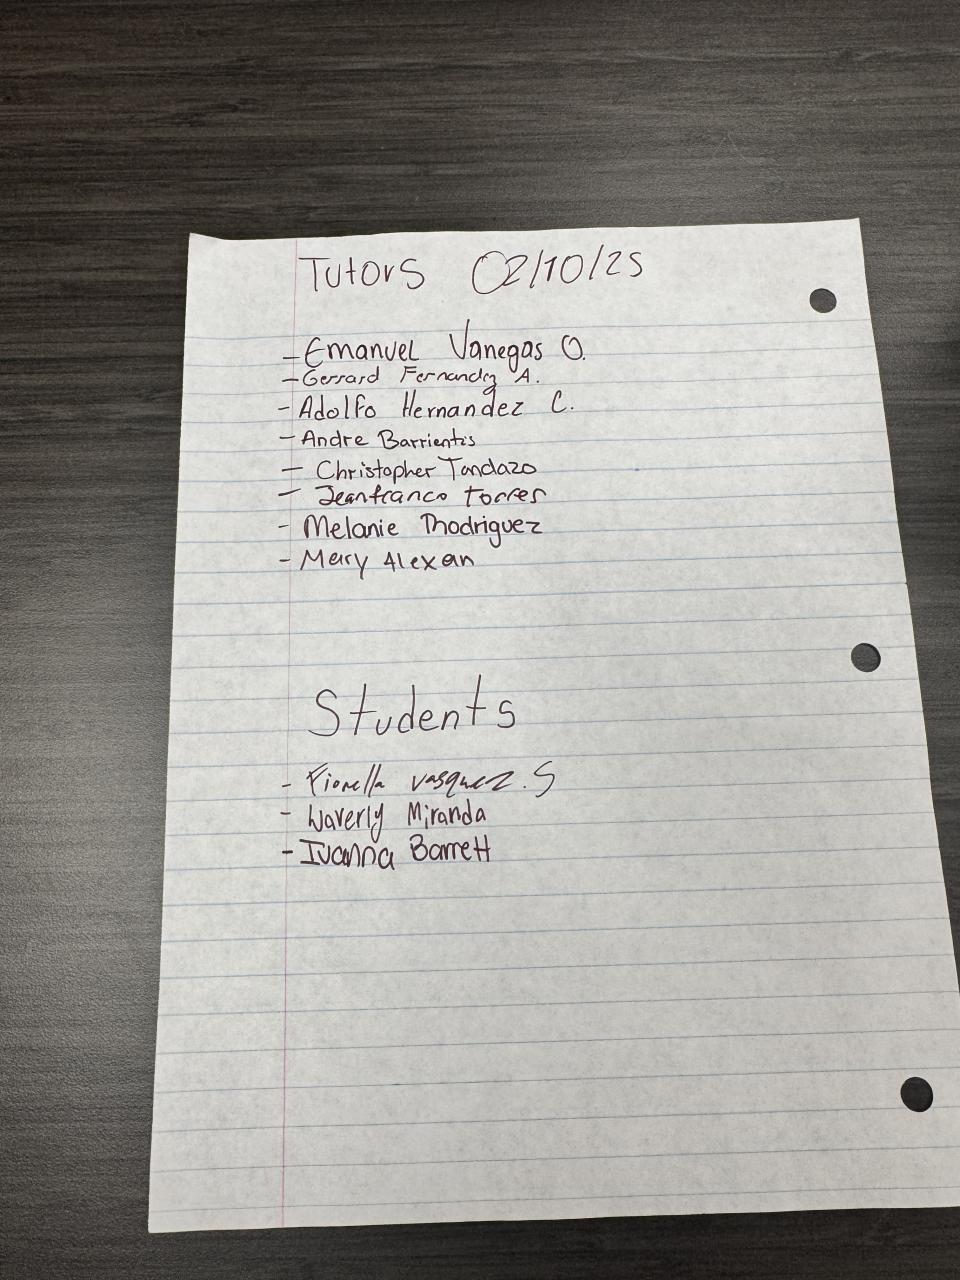 Tutors 02/10/25
- Emanuel Vanegas O.
- Gerrard Fernandez A.
- Adolfo Hernandez C.
- Andre Barrientis
- Christopher Tandazo
- Jeanfranco Torres
- Melanie Rhodriguez
- Mary Alexan
Students
- Fiorella Vasquez. S
- Waverly Miranda
- Ivanna Barrett